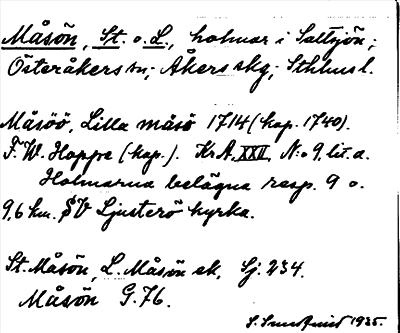 Måsön, St. o. L., holmar i Saltsjön;
Österåkers sn; Åkers skg; Sthlms l.
Måsöö, Lilla måsö 1714 (kop. 1740).
F. W. Hoppe (kop.). KrA, XXII, N:o 9, lit. a.
Holmarna belägna resp. 9 o.
9,6 km. SV Ljusterö kyrka.
St. Måsön, L. Måsön sk, Sj. 234.
Måsön G. 76.
1935.